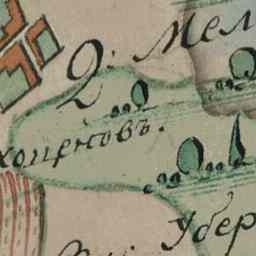 2. Мел
хоперковъ.
Убер